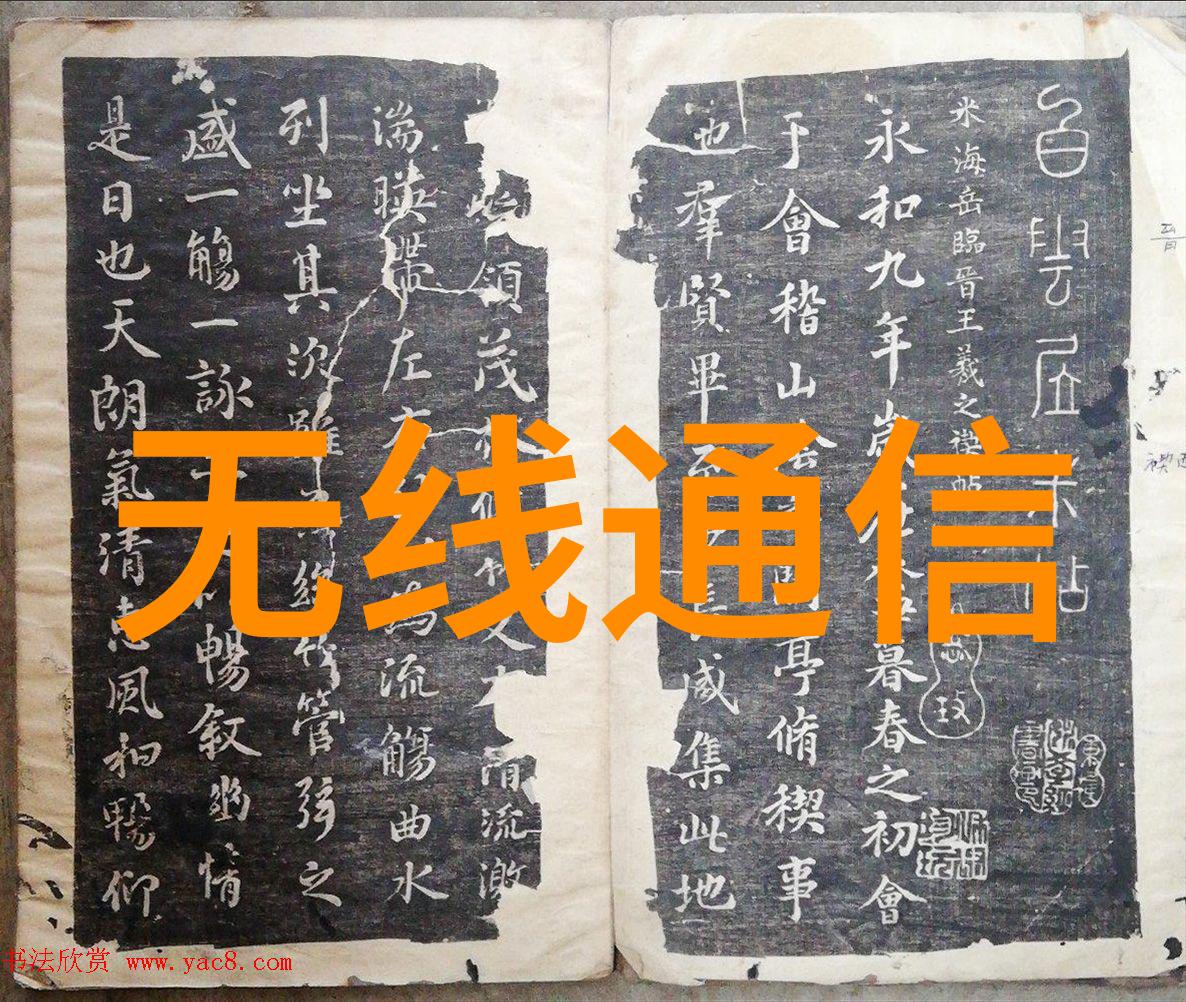 白雲居米帖
米海岳臨晉王羲之禊帖
永和九年歲在癸丑暮春之初會
于會稽山陰蘭亭脩稧事
也羣賢畢至少長咸集此地
領茂林脩竹又有清流激
湍暎帶左右為流觴曲水
列坐其次雖無絲竹管弦之
盛一觴一詠暢敘幽情
是日也天朗氣清惠風和暢仰
无线通信
书法欣赏 www.yac8.com